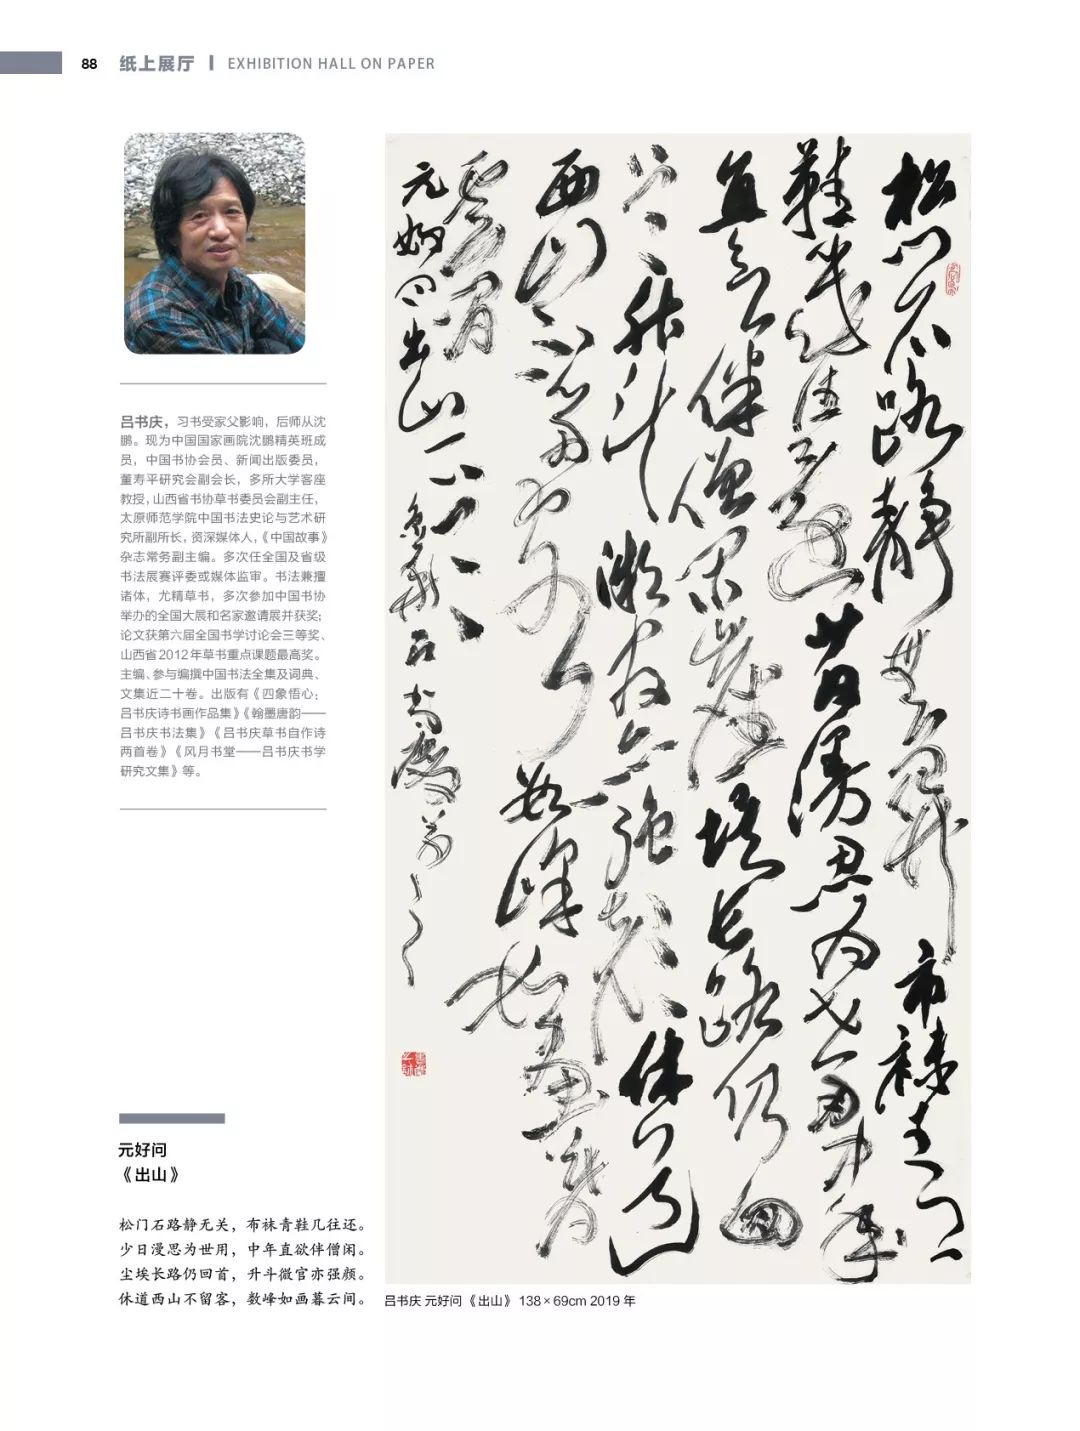 88 纸上展厅 | EXHIBITION HALL ON PAPER
吕书庆，习书受家父影响，后师从沈
鹏。现为中国国家画院沈鹏精英班成
员，中国书协会员、新闻出版委员，
董寿平研究会副会长，多所大学客座
教授，山西省书协草书委员会副主任，
太原师范学院中国书法史论与艺术研
究所副所长，资深媒体人，《中国故事》
杂志常务副主编。多次任全国及省级
书法展赛评委或媒体监审。书法兼擅
诸体，尤精草书，多次参加中国书协
举办的全国大展和名家邀请展并获奖；
论文获第六届全国书学讨论会三等奖、
山西省 2012 年草书重点课题最高奖。
主编、参与编撰中国书法全集及词典、
文集近二十卷。出版有《四象悟心：
吕书庆诗书画作品集》《翰墨唐韵——
吕书庆书法集》《吕书庆草书自作诗
两首卷》《风月书堂——吕书庆书学
研究文集》等。
松門石路靜無關布襪青
鞋幾往還昔日漫思為世用中年
直欲伴僧閑塵埃長路仍回
首升斗微官亦强顏休道
西山不留客數峰如畫暮
雲間
元好問出山
元好问
《出山》
松门石路静无关，布袜青鞋几往还。
少日漫思为世用，中年直欲伴僧闲。
尘埃长路仍回首，升斗微官亦强颜。
休道西山不留客，数峰如画暮云间。
吕书庆 元好问《出山》 138×69cm 2019 年